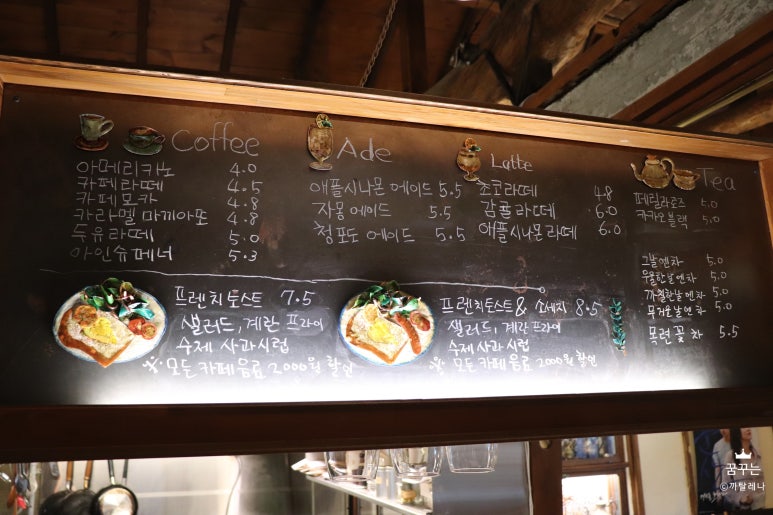 Coffee
아메리카노 4.0
카페라떼 4.5
카페모카 4.8
카라멜 마끼아또 4.8
두유라떼 5.0
아인슈페너 5.3
Ade
애플시나몬 에이드 5.5
자몽 에이드 5.5
청포도 에이드 5.5
Latte
초코라떼 4.8
감귤라떼 6.0
애플시나몬라떼 6.0
Tea
페릴라로즈 5.0
카카오블랙 5.0
그날엔차 5.0
우울한날엔차 5.0
까칠한날엔차 5.0
무거운날엔차 5.0
목련꽃차 5.5
프렌치토스트 7.5
샐러드, 계란 프라이
수제 사과시럽
※ 모든 카페음료 2000원 할인
프렌치토스트 & 소세지 8.5
샐러드, 계란 프라이
수제 사과시럽
※ 모든 카페음료 2000원 할인
꿈꾸는
©까탈레나